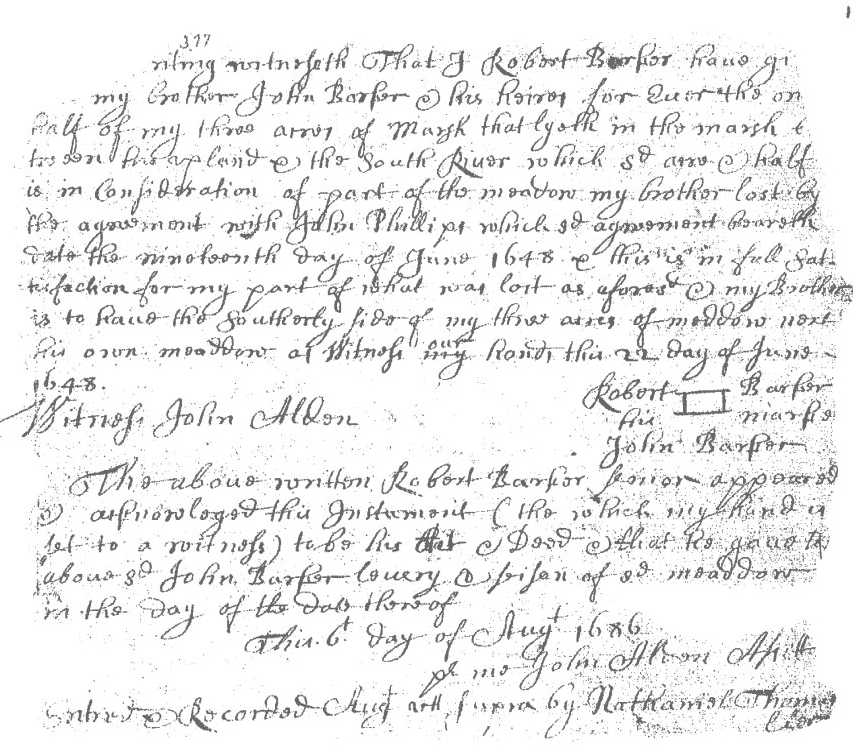 377
riting witneseth That I Robert Barker have gi
my brother John Barker & his heires for Ever the on
half of my three acres of Marsh that lyeth in the marsh b
tween the upland & the South River which sd acre & half
is in Consideration of part of the meadow my brother lost by
the agreement with John Phillips which sd agreement beareth
date the nineteenth day of June 1648 & this is in full Sat-
tisfaction for my part of what was lost as aforesd & my Brother
is to have the Southerly side of my three acres of meddow next
his own meaddow as Witness my our hands this 22 day of June
1648.
Robert Barker
his marke
Witness John Alden
John Barker
The above written Robert Barker senior appeared
& acknowleged this Instument (the which my hand is
set to a witness) to be his Act & Deed & that he gave the
above sd John Barker levery & seisen of sd meaddow
in the day of the date thereof
This 6t day of Augt 1686
pr me John Alden Assitt
Entred & Recorded Augt supra by Nathaniel Thomas